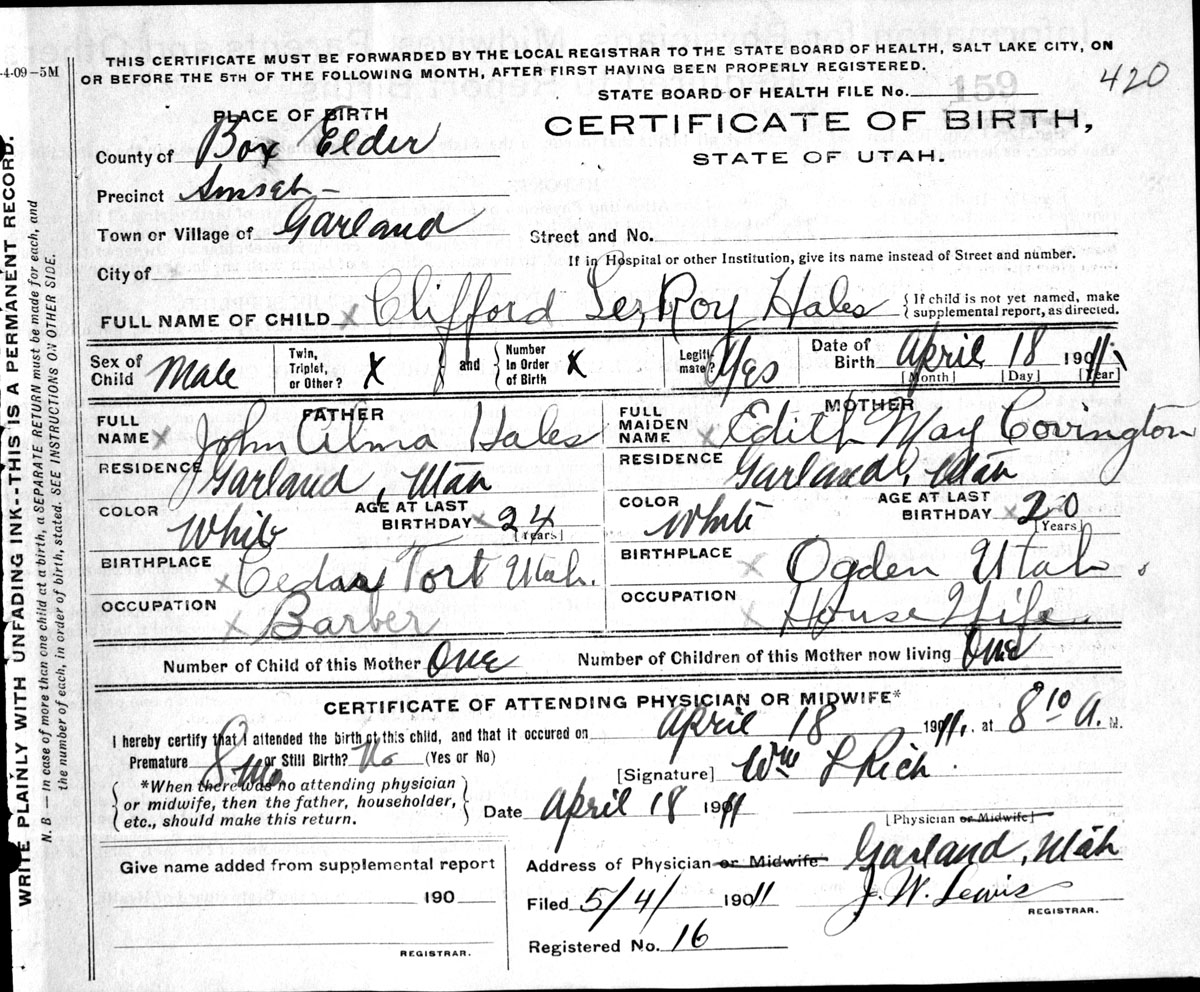 THIS CERTIFICATE MUST BE FORWARDED BY THE LOCAL REGISTRAR TO THE STATE BOARD OF HEALTH, SALT LAKE CITY, ON
OR BEFORE THE 5TH OF THE FOLLOWING MONTH, AFTER FIRST HAVING BEEN PROPERLY REGISTERED.
4-09-5M
420
STATE BOARD OF HEALTH FILE No. 159
PLACE OF BIRTH
CERTIFICATE OF BIRTH,
STATE OF UTAH.
County of Box Elder
Precinct
Town or Village of Garland
Street and No.
If in Hospital or other Institution, give its name instead of Street and number.
City of x
FULL NAME OF CHILD x Clifford Le Roy Hales { If child is not yet named, make supplemental report, as directed.
Sex of Child Male Twin, Triplet, or Other? X } and { Number In Order of Birth X Legiti-mate? Yes Date of Birth April 18 1911
[Month] [Day] [Year]
FATHER
FULL NAME x John Alma Hales
RESIDENCE Garland, Utah
COLOR White AGE AT LAST BIRTHDAY x 24 [Years]
BIRTHPLACE x Cedar Fort Utah.
OCCUPATION x Barber
MOTHER
FULL MAIDEN NAME x Edith May Covington
RESIDENCE Garland, Utah
COLOR White AGE AT LAST BIRTHDAY x 20 [Years]
BIRTHPLACE x Ogden Utah.
OCCUPATION x House Wife
Number of Child of this Mother One Number of Children of this Mother now living One
CERTIFICATE OF ATTENDING PHYSICIAN OR MIDWIFE*
I hereby certify that I attended the birth of this child, and that it occured on April 18 1911, at 8 10 A. M.
Premature 8 mo or Still Birth? No (Yes or No)
[Signature] Wm L Rich.
{ *When there was no attending physician or midwife, then the father, householder, etc., should make this return. }
Date April 18 1911
[Physician or Midwife]
Give name added from supplemental report
190
REGISTRAR.
Address of Physician or Midwife Garland, Utah
Filed 5/4/ 1911 J. W. Lewis
REGISTRAR.
Registered No. 16
WRITE PLAINLY WITH UNFADING INK--THIS IS A PERMANENT RECORD.
N. B—In case of more than one child at a birth, a SEPARATE RETURN must be made for each, and
the number of each, in order of birth, stated. SEE INSTRUCTIONS ON OTHER SIDE.